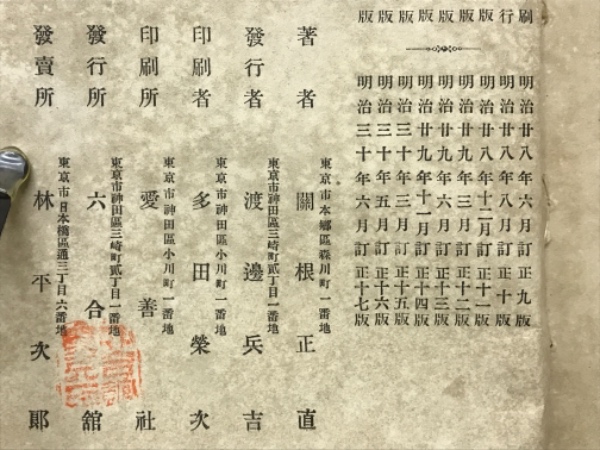 刷
行
版
版
版
版
版
版
版
明治廿八年六月訂正九版
明治廿八年八月訂正十版
明治廿八年十二月訂正十一版
明治廿九年三月訂正十二版
明治廿九年六月訂正十三版
明治廿九年十一月訂正十四版
明治三十年三月訂正十五版
明治三十年五月訂正十六版
明治三十年六月訂正十七版
東京市本鄕區森川町一番地
著者 關根正直
東京市神田區三崎町貳丁目一番地
發行者 渡邊兵吉
東京市神田區小川町一番地
印刷者 多田榮次
東京市神田區小川町一番地
印刷所 愛善社
東京市神田區三崎町貳丁目一番地
發行所 六合舘
東京市日本橋區通三丁目六番地
發賣所 林平次郞